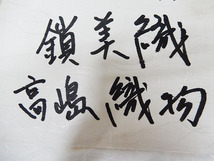 鎖美織
高嶋織物